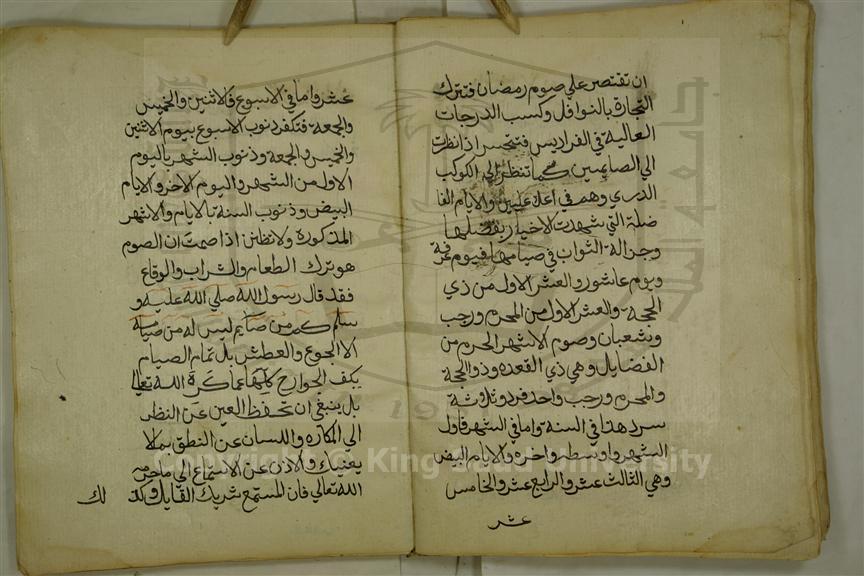 ان تقتصر على صوم رمضان فتترك
التجارة بالنوافل وكسب الدرجات
العالية في الفراديس فتتحسر اذا نظرت
الي الصايمين كما تنظر الي الكوكب
الدري وهم في اعلا عليين والايام الفا
ضلة التي شهدت الاخبار بفضلها
وجزالة الثواب في صيامها فيوم عرفة
ويوم عاشورا والعشر الاول من ذي
الحجة والعشر الاول من المحرم ورجب
وشعبان وصوم الاشهر الحرم من
الفضايل وهي ذي القعده وذو الحجة
والمحرم ورجب واحد فرد وثلاثة
سرد هذا في السنة واما في الشهر فاول
الشهر واوسطه واخره والايام البيض
وهي الثالث عشر والرابع عشر والخامس
عشر
عشر واما في الاسبوع فالاثنين والخميس
والجمعة فتكفر ذنوب الاسبوع بيوم الاثنين
والخميس والجمعة وذنوب الشهر باليوم
الاول من الشهر واليوم الاخر والايام
البيض وذنوب السنة بالايام والاشهر
المذكورة ولا تظن اذا صمت ان الصوم
هو ترك الطعام والشراب والوقاع
فقد قال رسول الله صلي الله عليه و
سلم كم من صايم ليس له من صيامه
الا الجوع والعطش بل تمام الصيام
بكف الجوارح كلها عما كره الله تعالى
بل ينبغي ان تحفظ العين عن النظر
الى المكاره واللسان عن النطق بما لا
يعنيك والاذن عن الاستماع الي ما حرمه
الله تعالي فان المستمع شريك القايل وكذ
لك
جامعة الملك
1957
Copyright © King Saud University